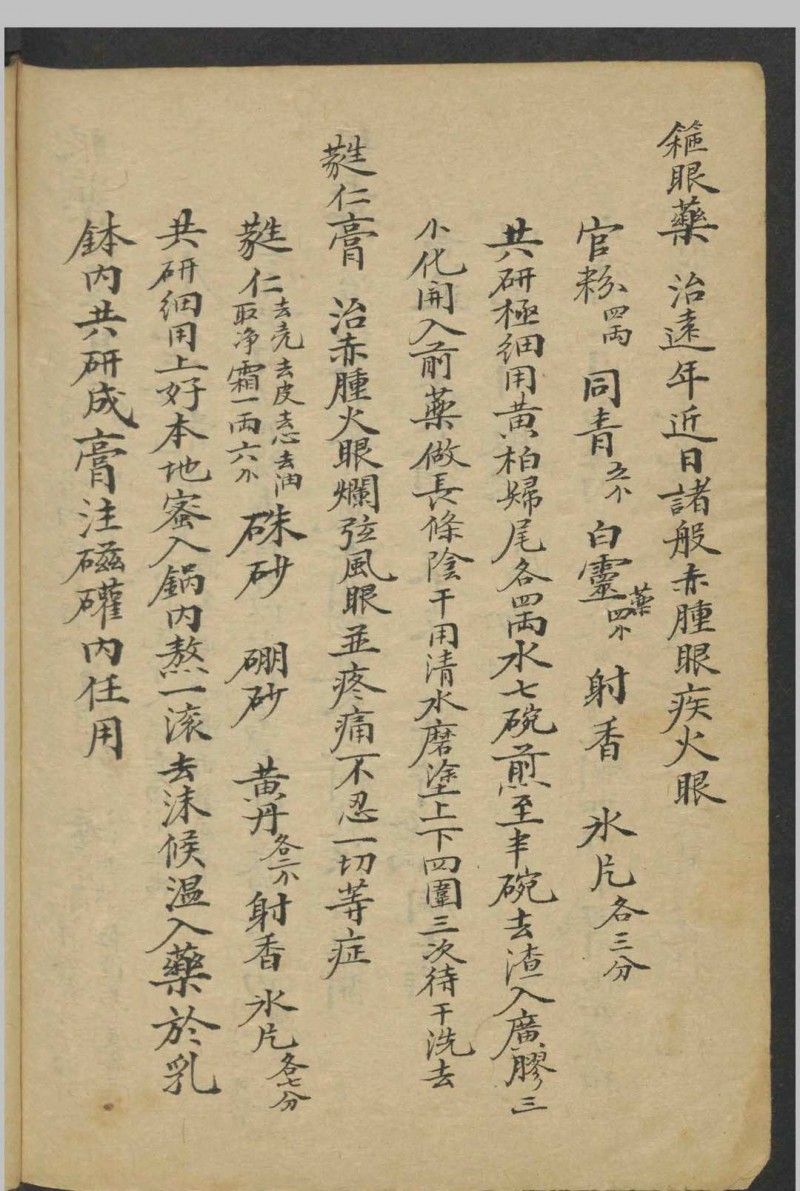 箍眼藥 治遠年近日諸般赤腫眼疾火眼
官粉四兩 同青五个 白靈藥四个 射香 氷片各三分
共研極細用黄柏婦尾各四兩水七碗煎至半碗去渣入廣膠三
个化開入前藥做長條陰干用清水磨塗上下四圍三次待干洗去
蕤仁膏 治赤腫火眼爛弦風眼並疼痛不忍一切等症
蕤仁去壳去皮去心去油取净霜一兩六个 硃砂 硼砂 黄丹各二个 射香 氷片各七分
共研細用上好本地蜜入鍋内熬一滚去沫候温入藥於乳
鉢内共研成膏注磁礶内任用